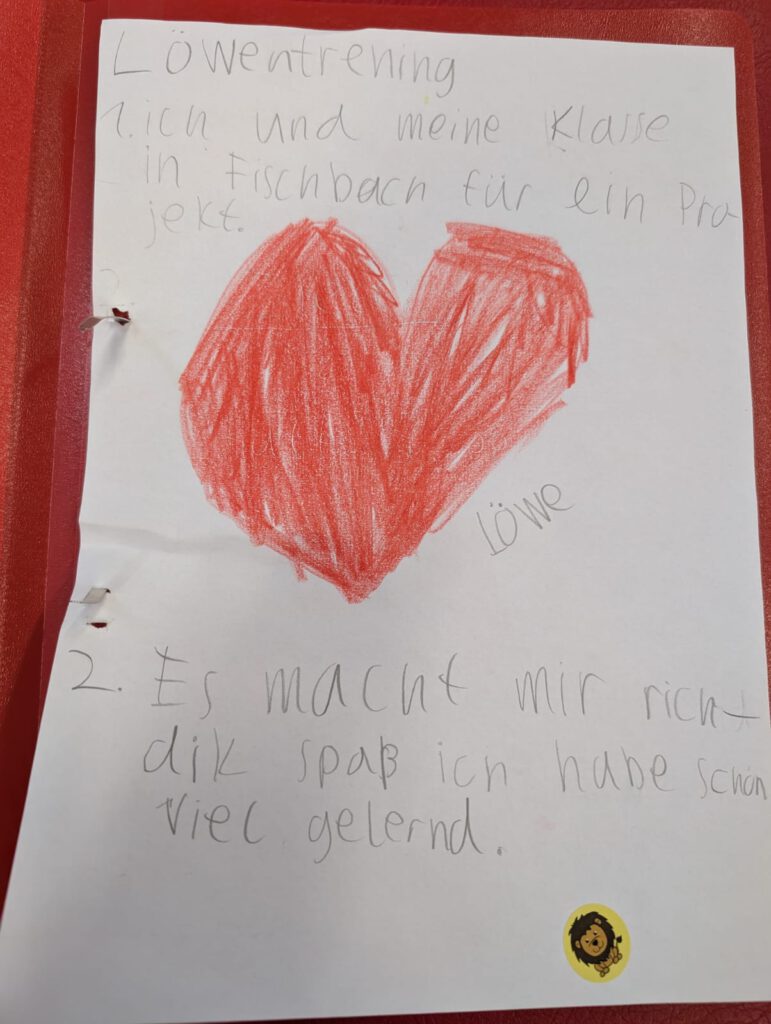 Löwentrening
1. ich und meine Klasse
in Fischbach für ein Pro-
jekt.
Löwe
2. Es macht mir richt-
dik spaß ich habe schon
viel gelernd.